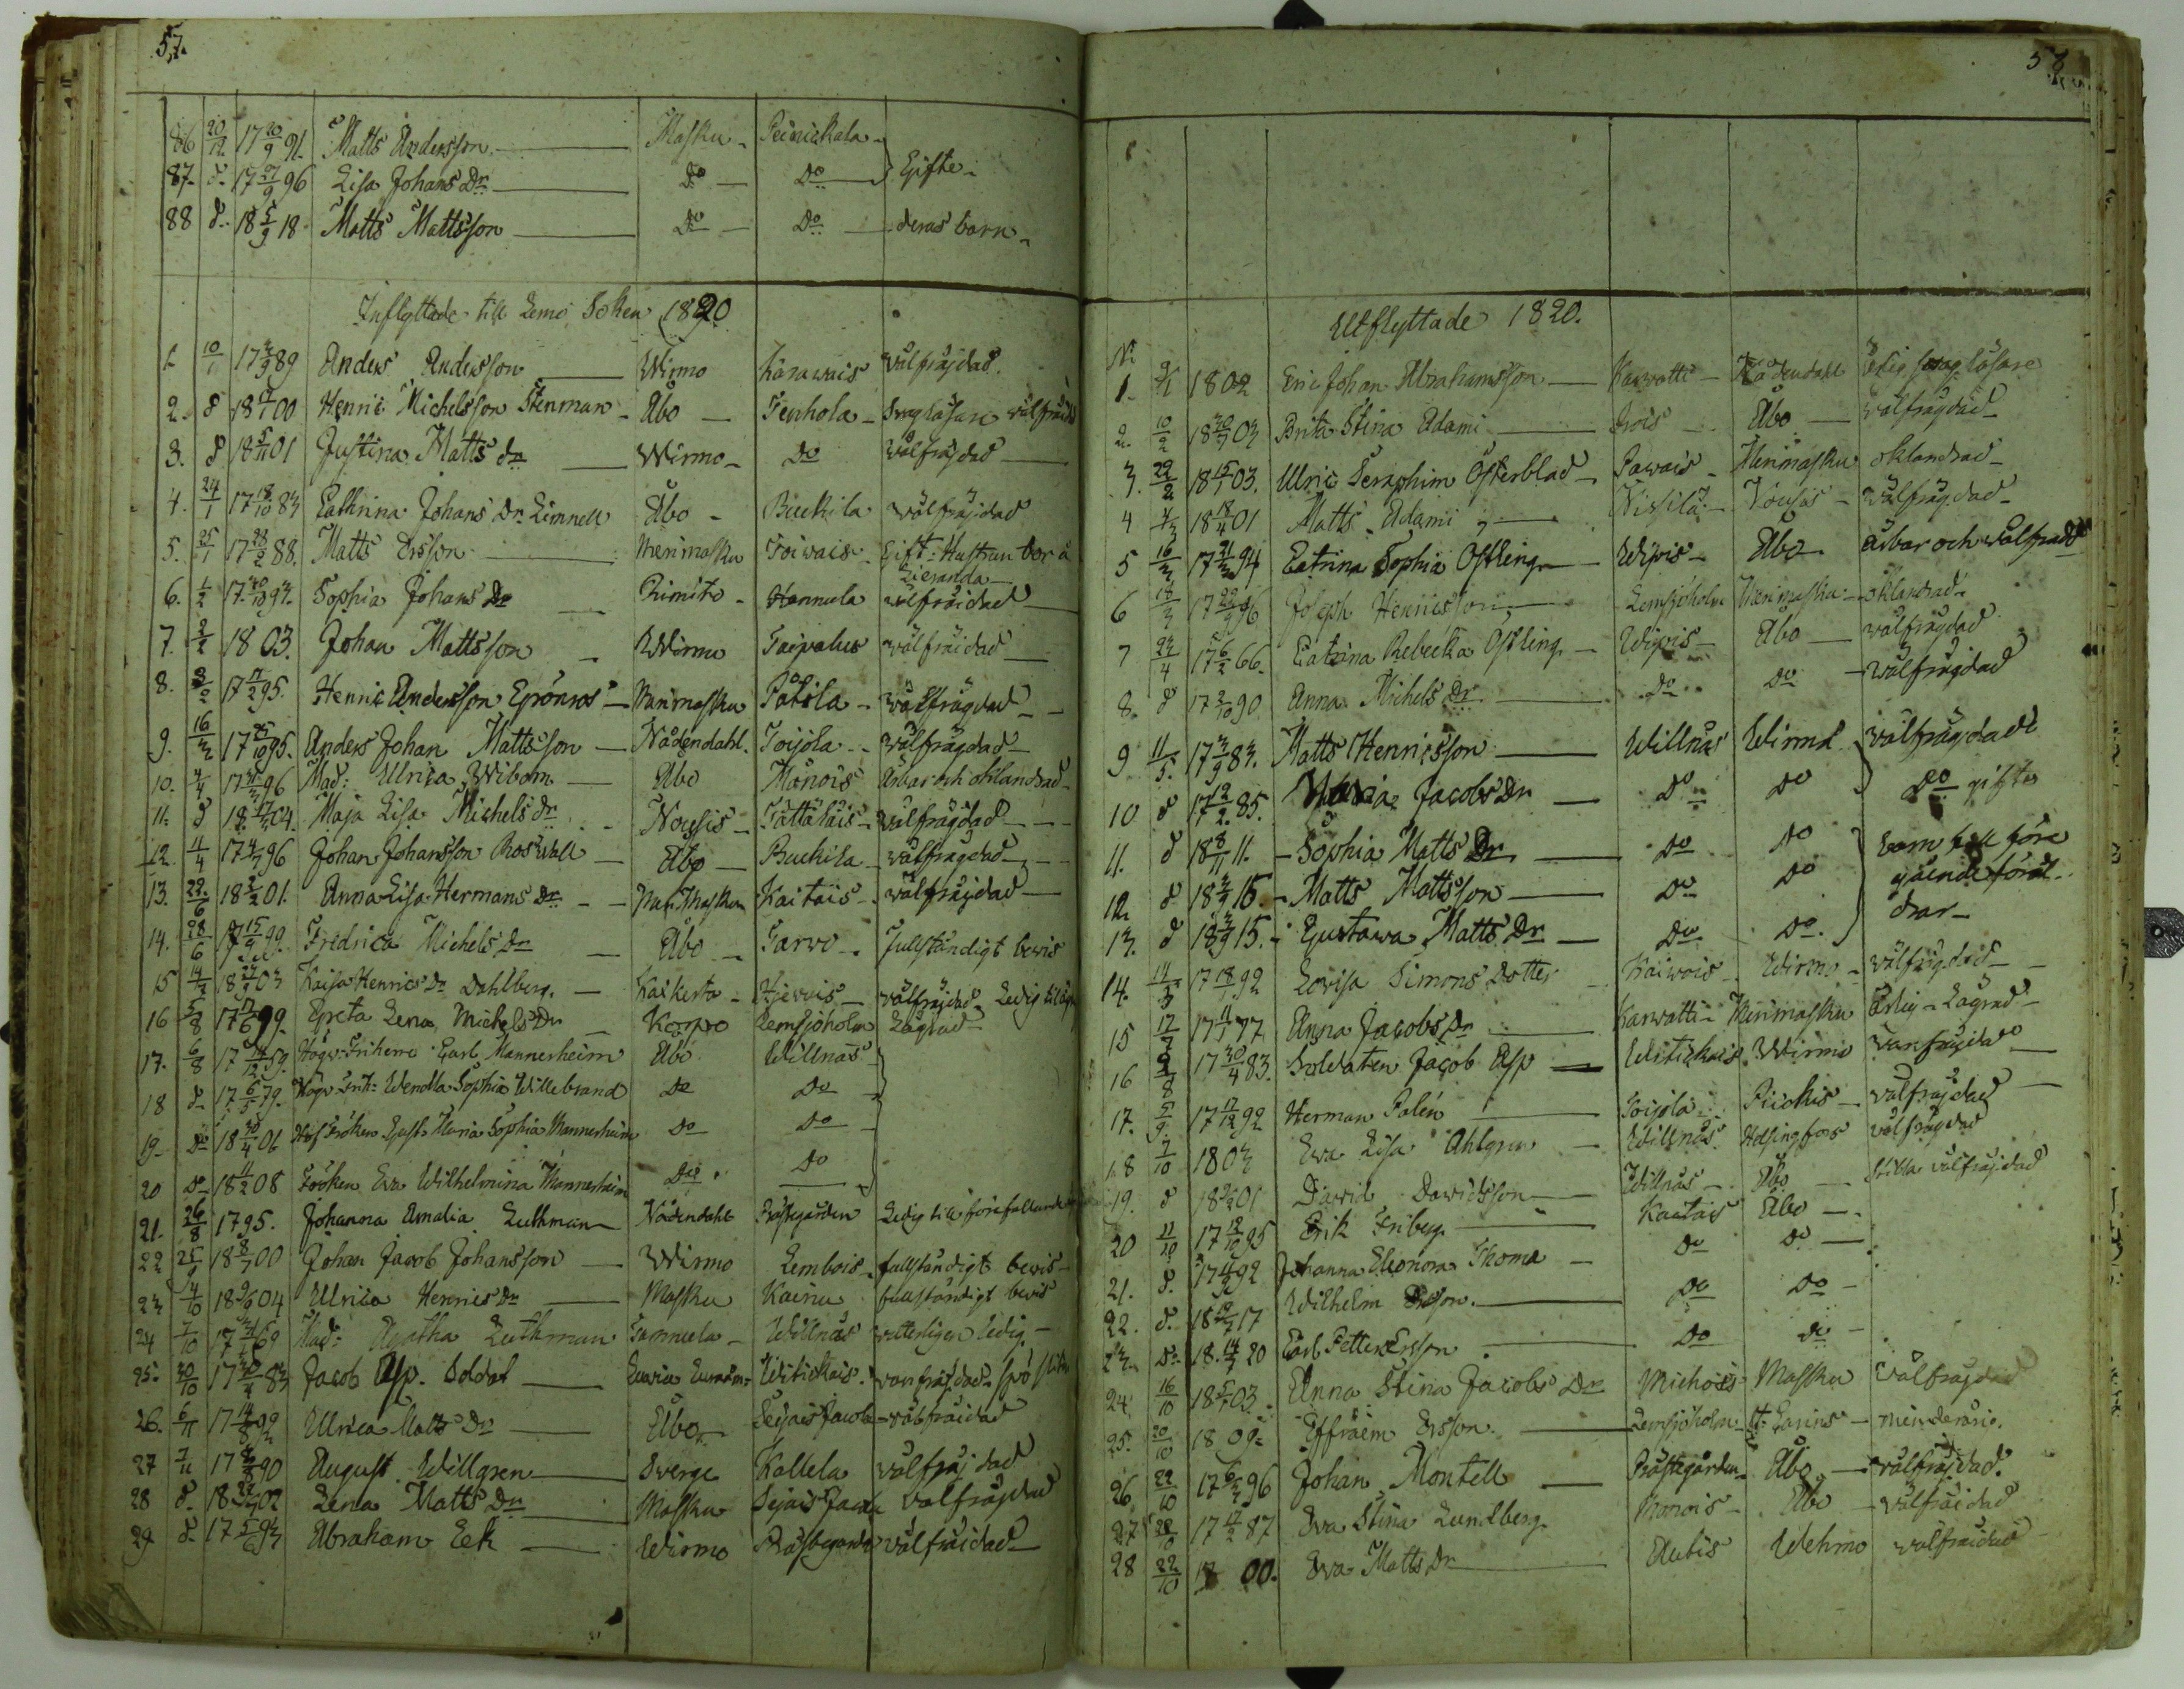 57.
86 20/12 17 20/9 91. Matts Andersson Masku Peinickala
87. d. 17 27/9 96 Lisa Johans Dr Do Do Gifte
88 d. 18 5/9 18 Matts Mattsson Do Do deras barn
Inflyttade till Lemo Soken 1820
1. 10/1 17 3/9 89 Anders Andersson Wirmo Karawais Välfräjdad.
2. d 18 00 Henric Michelsson Stenman Åbo Tenhola Svag läsare välfräjdad
3. d 18 5/11 01 Justina Matts dr Wirmo Do Välfräjdad
4. 24/1 17 18/10 83 Cathrina Johans Dr Limnell Åbo Buckila Välfräjdad
5. 25/1 17 28/2 88. Matts Ersson Merimasku Toiwais Gift: Hustrun bor å
6. 1/2 17 93. Sophia Johans Dr Rimito Hannula välfräidad
7. 2/2 1803. Johan Mattsson Wirmo Taipalus välfräidad
8. 3/2 17 17/2 95. Henric Andersson Grönros Merimasku Påtila Wälfrägdad
9. 16/3 17 95. Anders Johan Mattsson Nådendahl. Toijola Välfrägdad
10. 4/4 17 96 Mad: Ulrica Wibom Åbo Monois Ärbar och oklandrad
11. d 18 04. Maja Lisa Michels dr Nousis Tättäläis Välfrägdad
12. 11/4 17 4/7 96 Johan Johansson Roswall Åbo Buckila välfrägdad
13. 22/6 18 2/2 01. Anna Lisa Hermans Dr Mer.Maskun Kaitais välfrejdad
14. 28/6 17 15/9 99. Fredrica Michels Dr Åbo Tarwo Fullständigt bevis
15 14/7 18 03 Kaisa Henrics Dr Dahlberg. Kaikerta Hjervais välfräjdad Ledig till ägt
16 5/8 17 99. Greta Lena Michels Dr Korpo Lemsjöholm Lagvad
17. 6/8 17 14/12 59. Högw: Friherre Carl Mannerheim Åbo Willnäs
18 d. 17 6/5 79. Högv. Frih: Wendla Sophia Willebrand Do Do
19. Do 18 06 Fröken Gust: Maria Sophia Mannerheim Do Do
20 Do 18 11/2 08 Fröken Eva Wilhelmina Mannerheim Do Do
21. 26/8 1795. Johanna Amalia Luthman Nådendahl Prästegården Ledig till förefallande
22 25/9 18 8/7 00 Johan Jacob Johansson Wirmo Lembois fullständigt bevis
23 4/10 18 04 Ulrica Henrics Dr Masku Kainu fullständigt bevis
24 7/10 17 69 Mad: Agatha Luthman Willnäs witterligen ledig
25. 20/10 17 30/4 83 Jacob Asp. Soldat Witickais. van fräjdad
26. 6/11 17 14/8 92 Ulrica Matts Dr Åbo Seijais Jacob välfräidad
27 7/11 17 90 August Willgren Sverge Kallela välfräjdad
28 d. 18 02 Lena Matts Dr Masku Sejais Jacob valfräjdad
29 d. 17 93 Abraham Eek Wirmo Prästegården välfräidad
58
Utflyttade 1820.
No
1. 9/1 1802 Eric Johan Abrahamsson Karvatti Nådendahl ledig svag läsare
2. 10/2 18 30/7 03 Brita Stina Adami Irois Åbo välfrägdad
3. 22/2 18 15/7 03. Ulric Seraphim Österblad Pawais Merimasku oklandrad
4 4/3 18 18/4 01 Matts Adami Nousis välfrägdad
5 16/3 17 21/3 94 Catrina Sophia Ostling Wipis Åbo ärbar och välfrädd
6 18/3 17 96 Joseph Henricsson Lemsjöholm Merimasku oklandrad
7 24/4 17 6/2 66. Catrina Rebecka Ostling Wipis Åbo välfrägdad
8. d 17 2/10 90 Anna Michels Dr Do Do välfrägdad
9 11/5. 17 3/9 83. Matts Henricsson Willnäs Wirmo välfrägdade
10 d 17 12/2 85. Maria Jacobs Dr Do Do Do gifte
11. d 18 8/11 11. Sophia Matts Dr Do Do barn till före
12. d 18 15. Matts Mattsson Do Do gående föräl
13. d 18 15. Gustawa Matts Dr Do Do. drar
14. 17 18 92 Lovisa Simons Dotter Kaiwois Wirmo välfrägdad
15 17/7 17 11/7 77 Anna Jacobs Dr Karwatti Merimasku Ärlig Lagvad
16 2/8 17 30/4 83. Soldaten Jacob Asp Witickais Wirmo Vanfräjdad
17. 5/9 17 17/12 92 Herman Palén Toijola Piickis valfräjdad
18 7/10 1803 Ewa Lisa Ahlgren Willnäs Helsingfors välfrägdad
19. d 18 01 David Davidsson Willnäs Åbo stilla välfräjdad
20 11/10 17 12/10 95 Erik Friberg Kaitais Åbo
21. d. 17 92 Johanna Eleonora Thoma Do Do
22. d. 18 19/7 17 Wilhelm Ersson. Do Do
23. Do 18. 14/3 20 Carl Petter Ersson Do Do
24 16/10 18 5/7 03 Anna Stina Jacobs Dr Michois Masku Välfräjdad
25. 20/10 18 09. Effraim Ersson. Lemsjöholm St. Carins minderårig.
26 22/10 17 6/7 96 Johan Montell Prästegården Åbo välfräjdad.
27 22/10 17 17/2 87 Eva Stina Lundberg Monois Åbo Välfräidad
28 22/10 18 00. Eva Matts Dr Autis Wehmo välfräidad